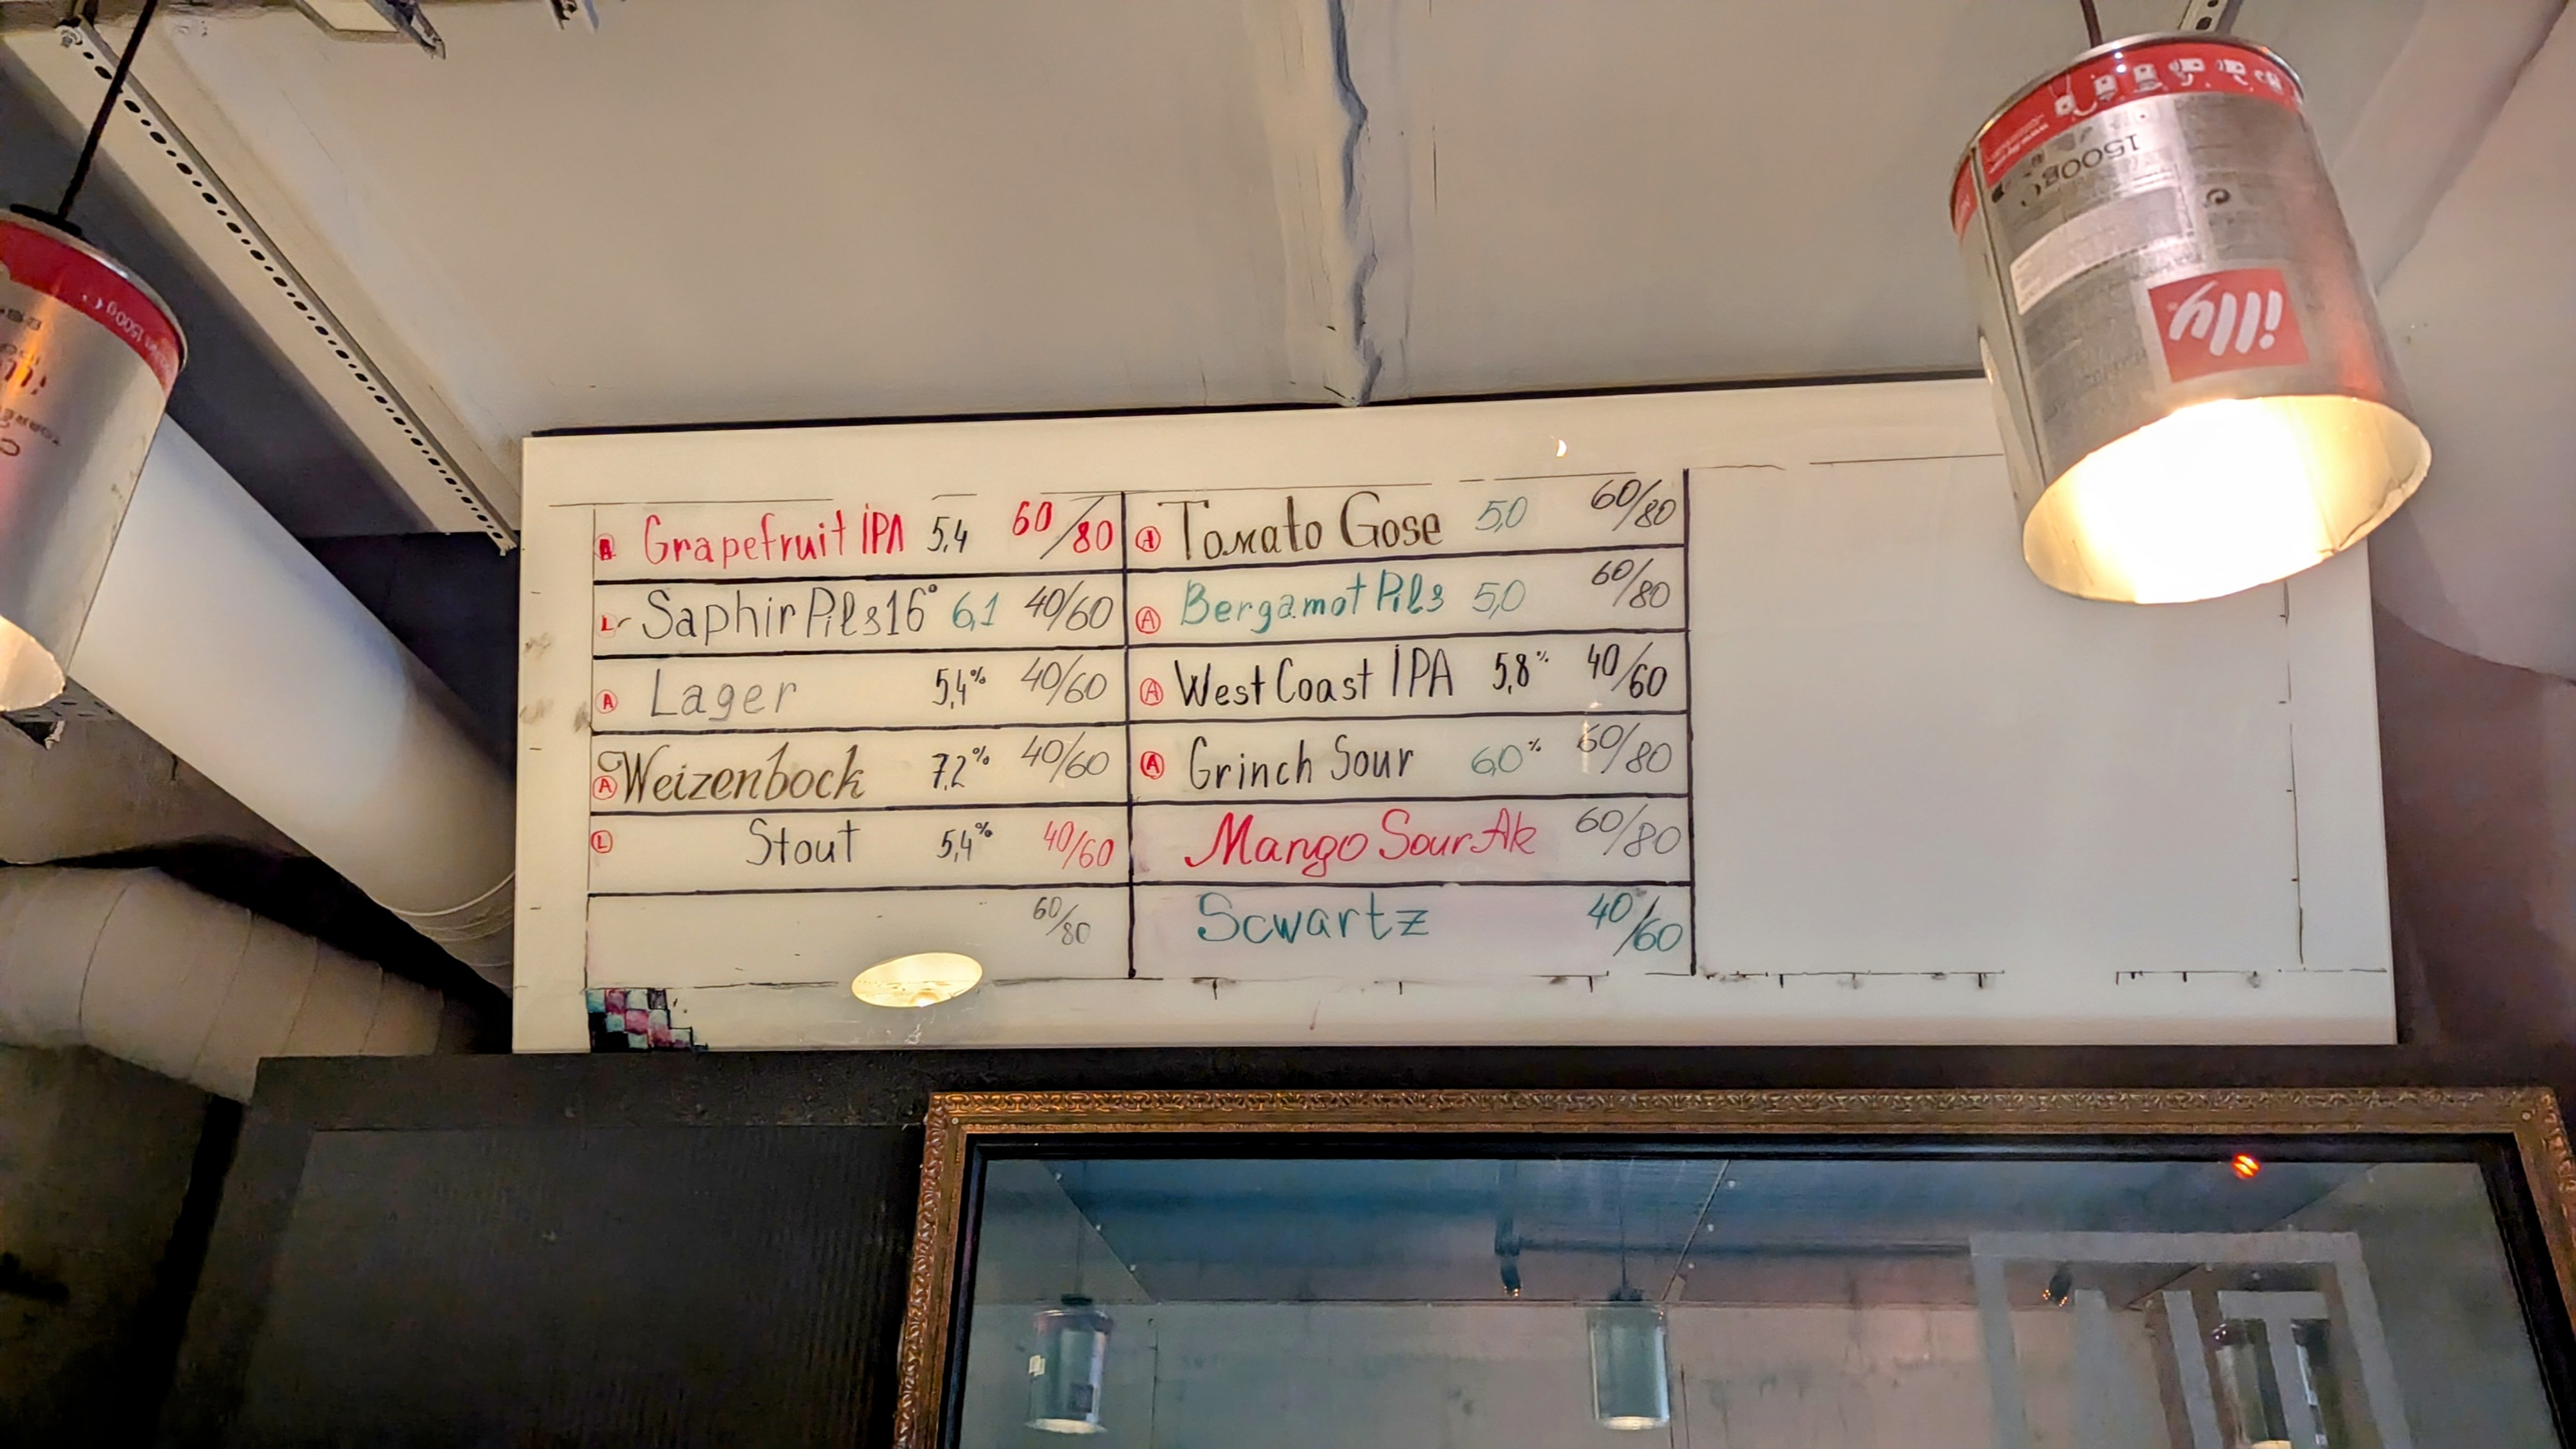 A Grapefruit IPA 5,4 60/80
L Saphir Pils 16° 6,1 40/60
A Lager 5,4% 40/60
A Weizenbock 7,2% 40/60
L Stout 5,4% 40/60
60/80
A Tomato Gose 5,0 60/80
A Bergamot Pils 5,0 60/80
A West Coast IPA 5,8% 40/60
A Grinch Sour 6,0% 60/80
Mango Sour Ale 60/80
Scwartz 40/60
1500g
illy
1500g